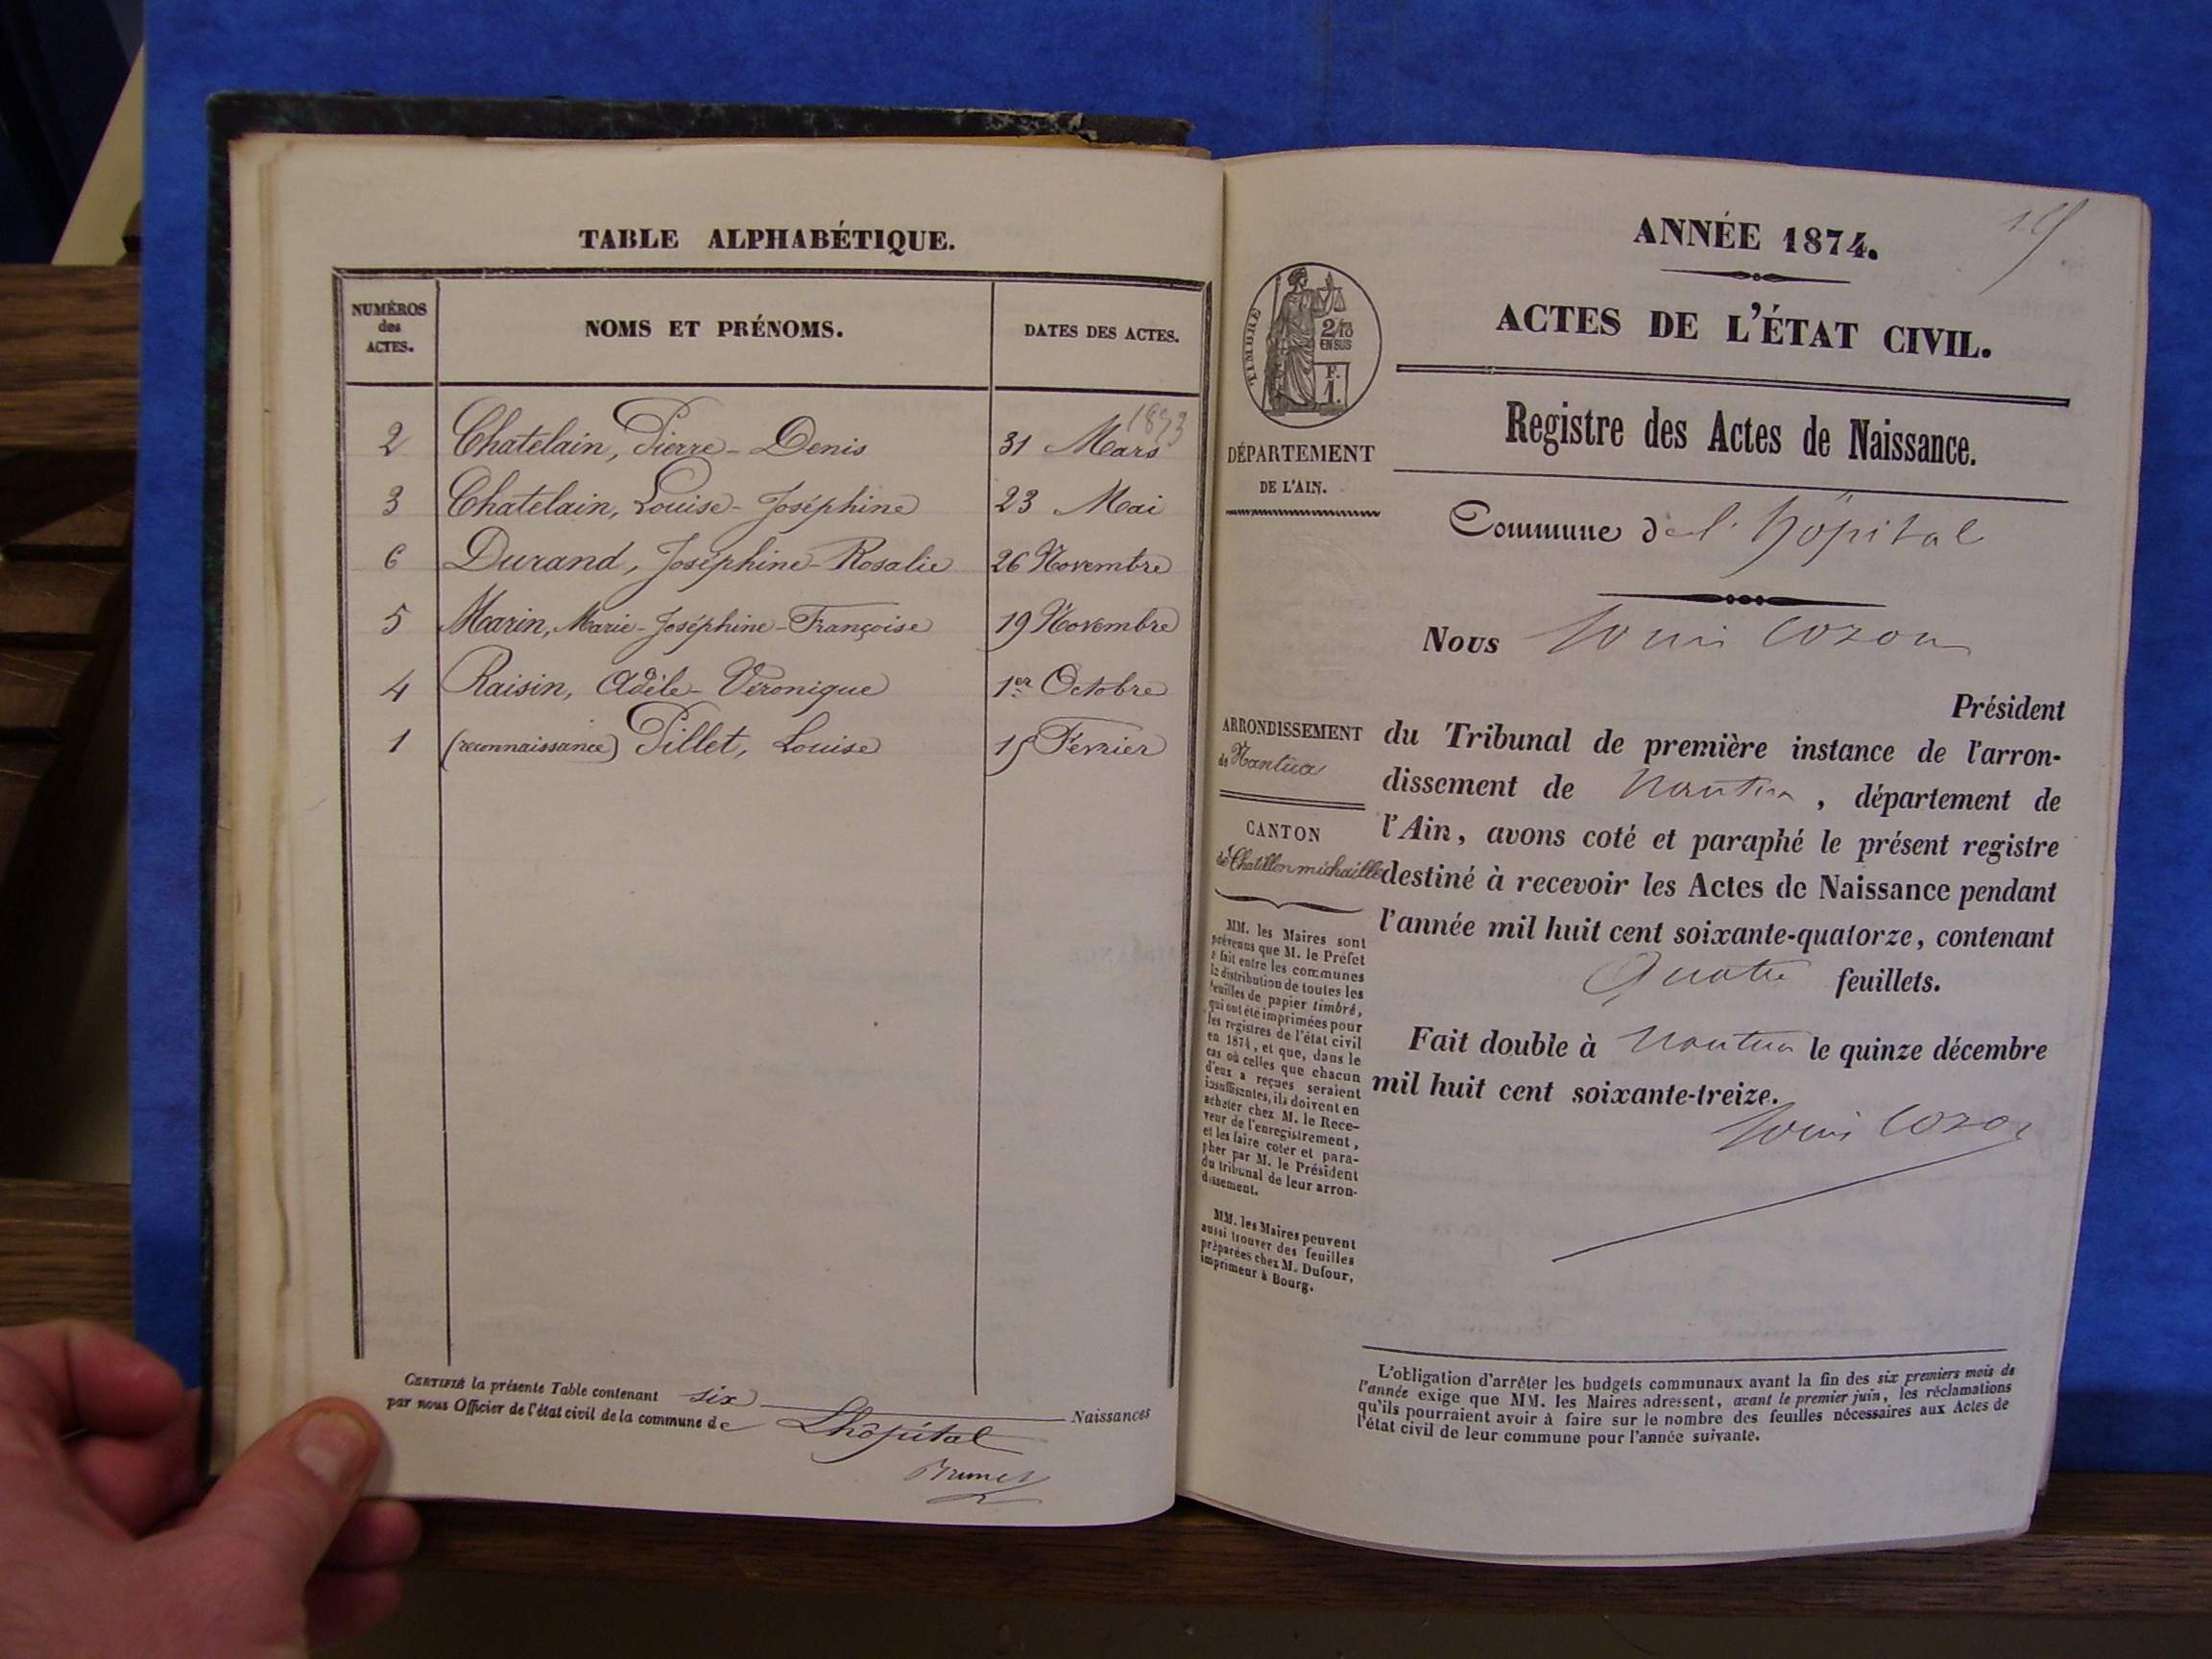 TABLE ALPHABÉTIQUE.
NUMÉROS des ACTES.
NOMS ET PRÉNOMS.
DATES DES ACTES.
1873
2 Chatelain, Pierre-Denis 31 Mars
3 Chatelain, Louise-Joséphine 23 Mai
6 Durand, Joséphine-Rosalie 26 Novembre
5 Marin, Marie-Joséphine-Françoise 19 Novembre
4 Raisin, Adèle-Véronique 1er Octobre
1 (reconnaissance) Pillet, Louise 15 Février
CERTIFIÉ la présente Table contenant six Naissances
par nous Officier de l'état civil de la commune de Lhôpital
Brunet
ANNÉE 1874.
ACTES DE L'ÉTAT CIVIL.
TIMBRE
2/10
EN SUS
F.
1.
Registre des Actes de Naissance.
DÉPARTEMENT
DE L'AIN.
Commune de l'hôpital
Nous Louis Cozon
Président
ARRONDISSEMENT
de Nantua
CANTON
de Chatillon michaille
du Tribunal de première instance de l'arron-
dissement de Nantua, département de
l'Ain, avons coté et paraphé le présent registre
destiné à recevoir les Actes de Naissance pendant
l'année mil huit cent soixante-quatorze, contenant
Quatre feuillets.
Fait double à Nantua le quinze décembre
mil huit cent soixante-treize.
Louis Cozon
MM. les Maires sont
prévenus que M. le Préfet
a fait entre les communes
la distribution de toutes les
feuilles de papier timbré,
qui ont été imprimées pour
les registres de l'état civil
en 1874, et que, dans le
cas où celles que chacun
d'eux a reçues seraient
insuffisantes, ils doivent en
acheter chez M. le Rece-
veur de l'enregistrement,
et les faire coter et para-
pher par M. le Président
du tribunal de leur arron-
dissement.
MM. les Maires peuvent
aussi trouver des feuilles
préparées chez M. Dufour,
imprimeur à Bourg.
L'obligation d'arrêter les budgets communaux avant la fin des six premiers mois de
l'année exige que MM. les Maires adressent, avant le premier juin, les réclamations
qu'ils pourraient avoir à faire sur le nombre des feuilles nécessaires aux Actes de
l'état civil de leur commune pour l'année suivante.